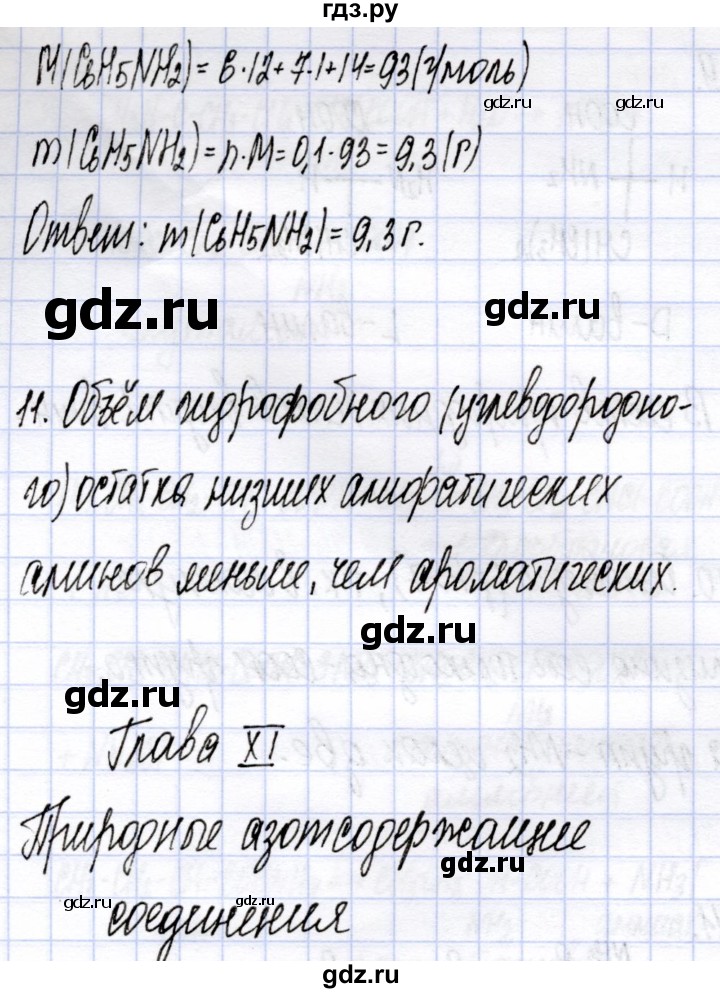 гдз.ру
M(C6H5NH2) = 6·12+7·1+14=93(г/моль)
gdz.ru
gdz.ru
m(C6H5NH2)=n·M=0,1·93=9,3(г)
Ответ: m(C6H5NH2)=9,3г.
gdz.ru
gdz.ru
11. Объём гидрофобного (углеводородоно-
го) остатка низших алифатических
аминов меньше, чем ароматических.
gdz.ru
gdz.ru
Глава XI
Природные азотсодержащие
gdz.ru
gdz.ru
gdz.ru
соединения
gdz.ru
gdz.ru